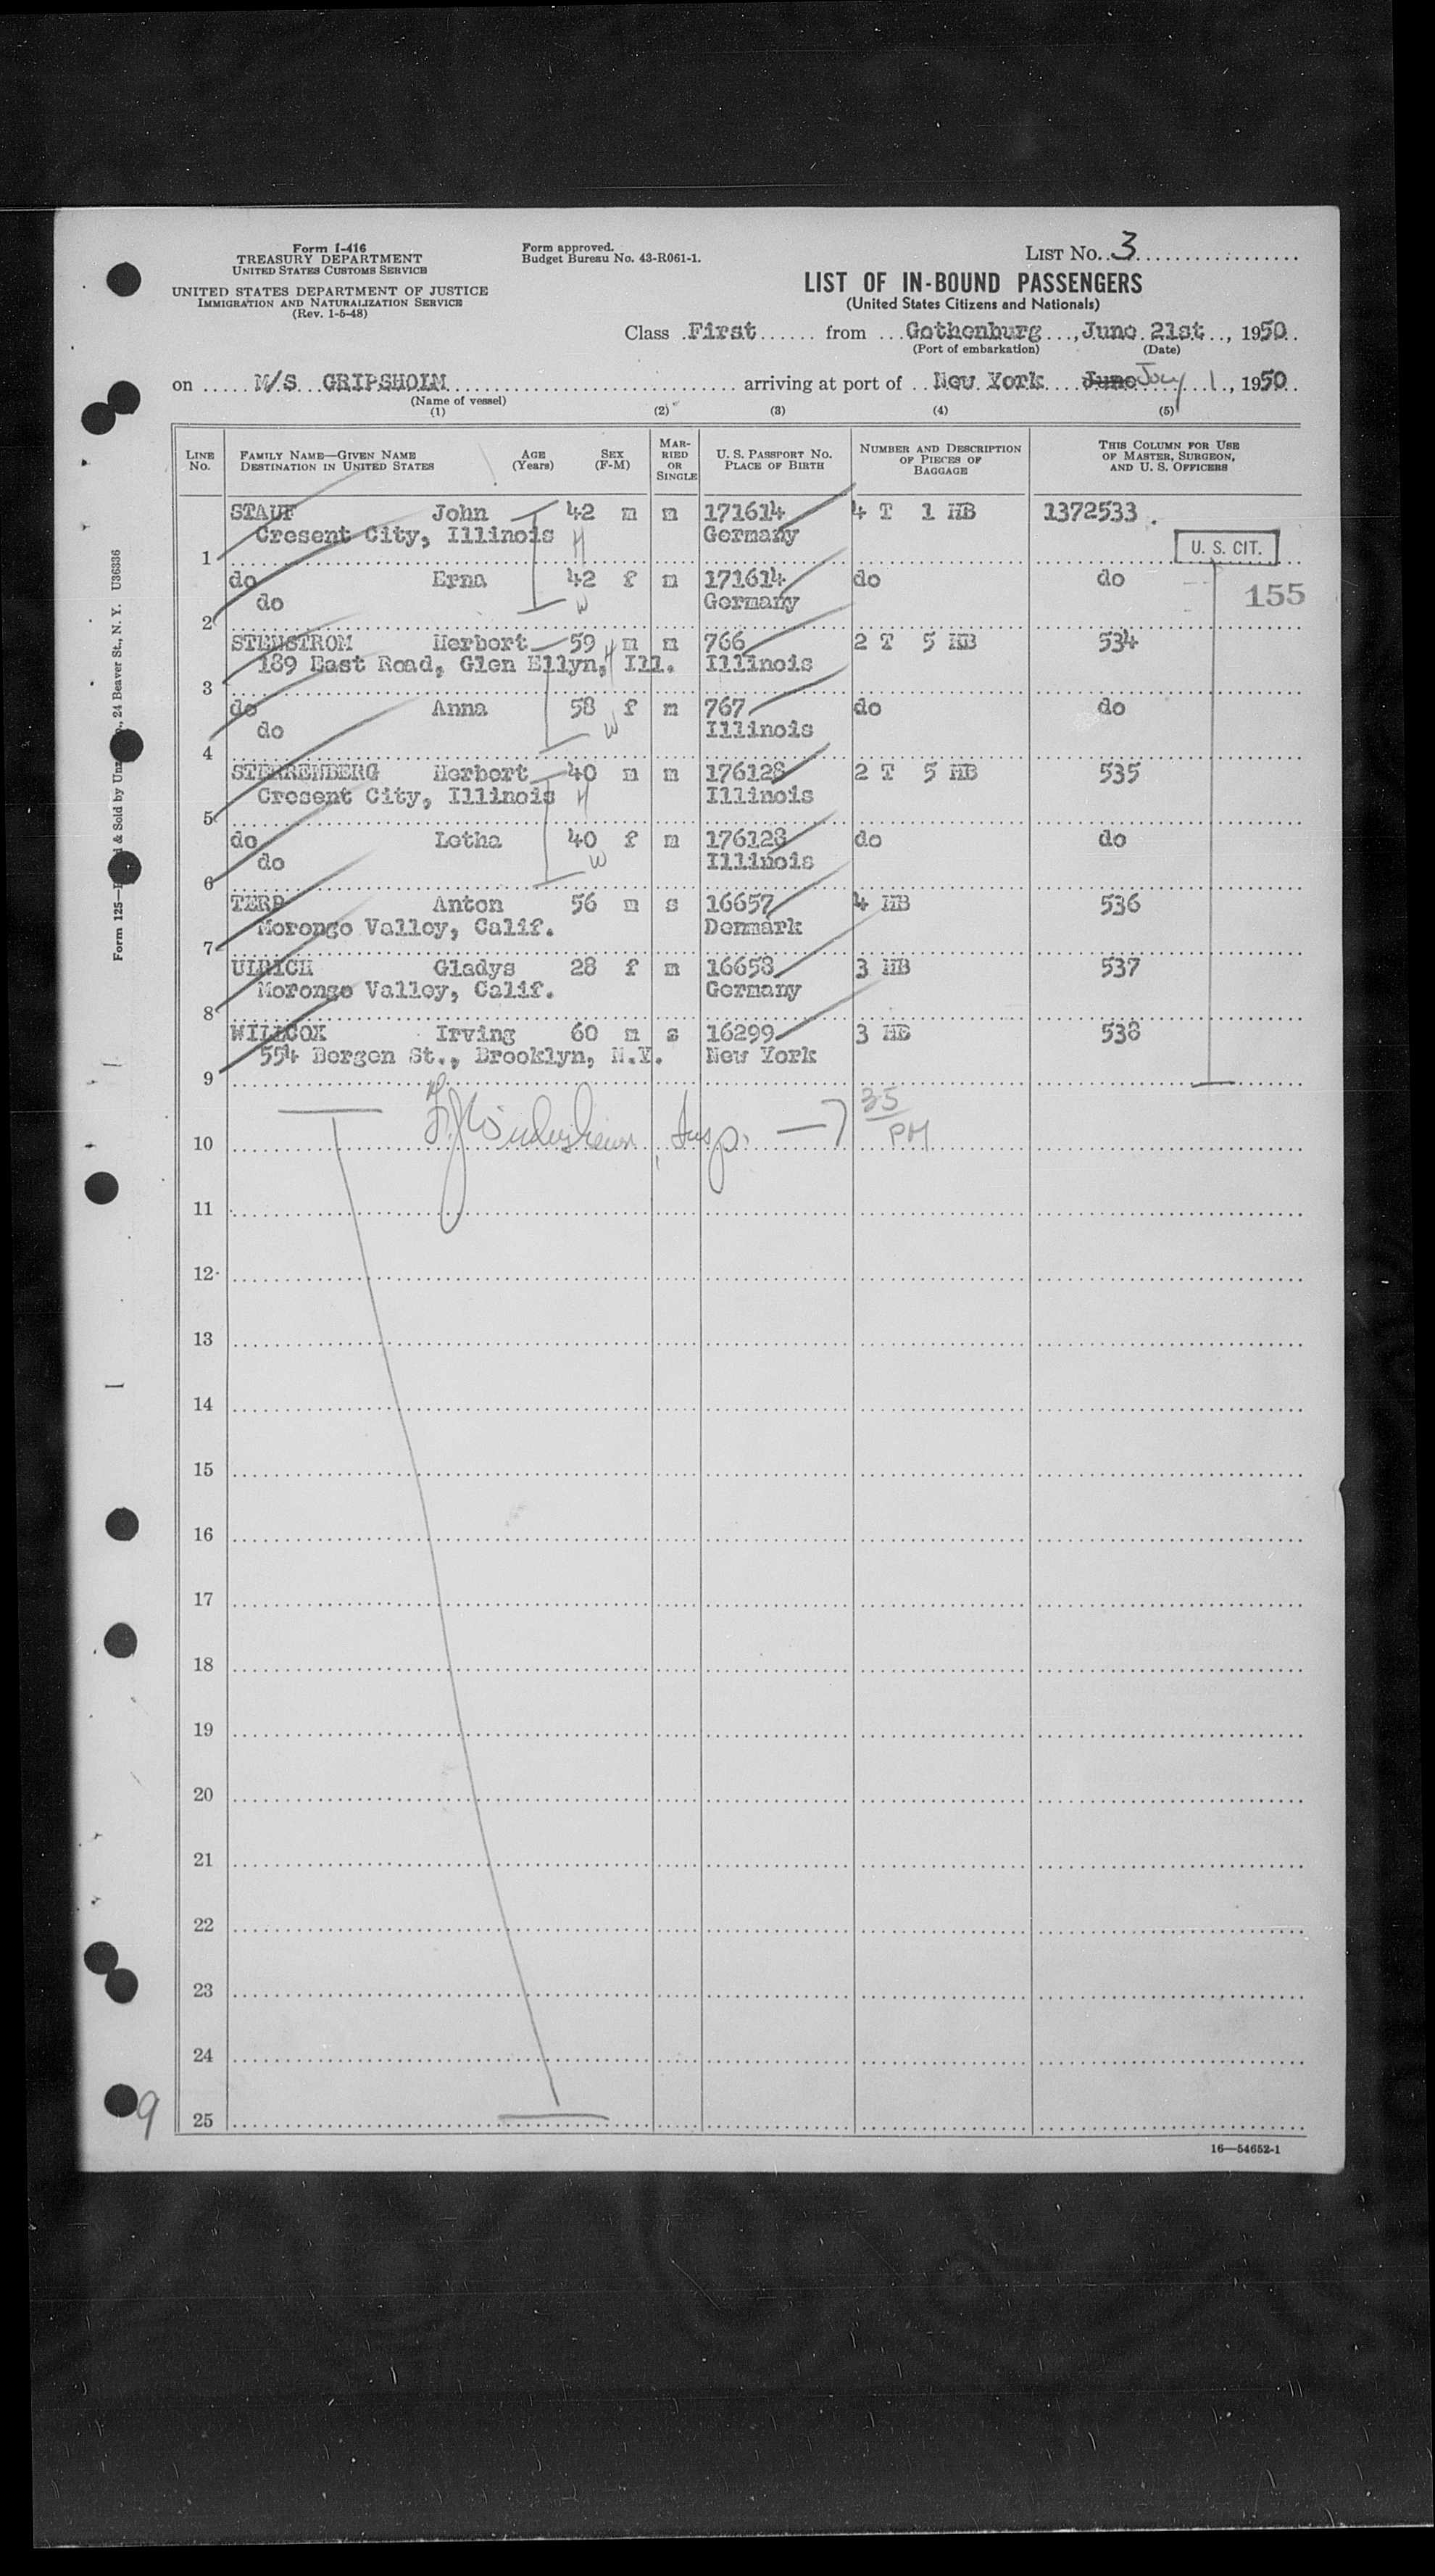 Form I-416
TREASURY DEPARTMENT
UNITED STATES CUSTOMS SERVICE
UNITED STATES DEPARTMENT OF JUSTICE
IMMIGRATION AND NATURALIZATION SERVICE
(Rev. 1-5-48)
Form approved.
Budget Bureau No. 43-R061-1.
LIST No. 3
LIST OF IN-BOUND PASSENGERS
(United States Citizens and Nationals)
Class First from Gothenburg, June 21st, 1950
(Port of embarkation) (Date)
on M/S GRIPSHOLM arriving at port of New York June July 1, 1950
(Name of vessel)
(1) (2) (3) (4) (5)
LINE No. FAMILY NAME—GIVEN NAME DESTINATION IN UNITED STATES AGE (Years) SEX (F-M) MARRIED OR SINGLE U. S. PASSPORT No. PLACE OF BIRTH NUMBER AND DESCRIPTION OF PIECES OF BAGGAGE THIS COLUMN FOR USE OF MASTER, SURGEON, AND U. S. OFFICERS
STAUF John 42 m m 171614 4 T 1 HB 1372533
1 Cresent City, Illinois H Germany
U. S. CIT.
do Erna 42 f m 171614 do do
2 do W Germany
155
STENSTROM Herbert 59 m m 766 2 T 5 HB 534
3 189 East Road, Glen Ellyn, Ill. H Illinois
do Anna 58 f m 767 do do
4 do W Illinois
STERRENBERG Herbert 40 m m 176128 2 T 5 HB 535
5 Cresent City, Illinois H Illinois
do Letha 40 f m 176128 do do
6 do W Illinois
TERP Anton 56 m s 16657 4 HB 536
7 Morongo Valley, Calif. Denmark
ULRICH Gladys 28 f m 16658 3 HB 537
8 Morongo Valley, Calif. Germany
WILLCOX Irving 60 m s 16299 3 HB 538
9 554 Bergen St., Brooklyn, N.Y. New York
Insp. — 7 35 PM
10
11
12
13
14
15
16
17
18
19
20
21
22
23
24
25
9
16—54652-1
Form 125— & Sold by 24 Beaver St., N. Y. U36336